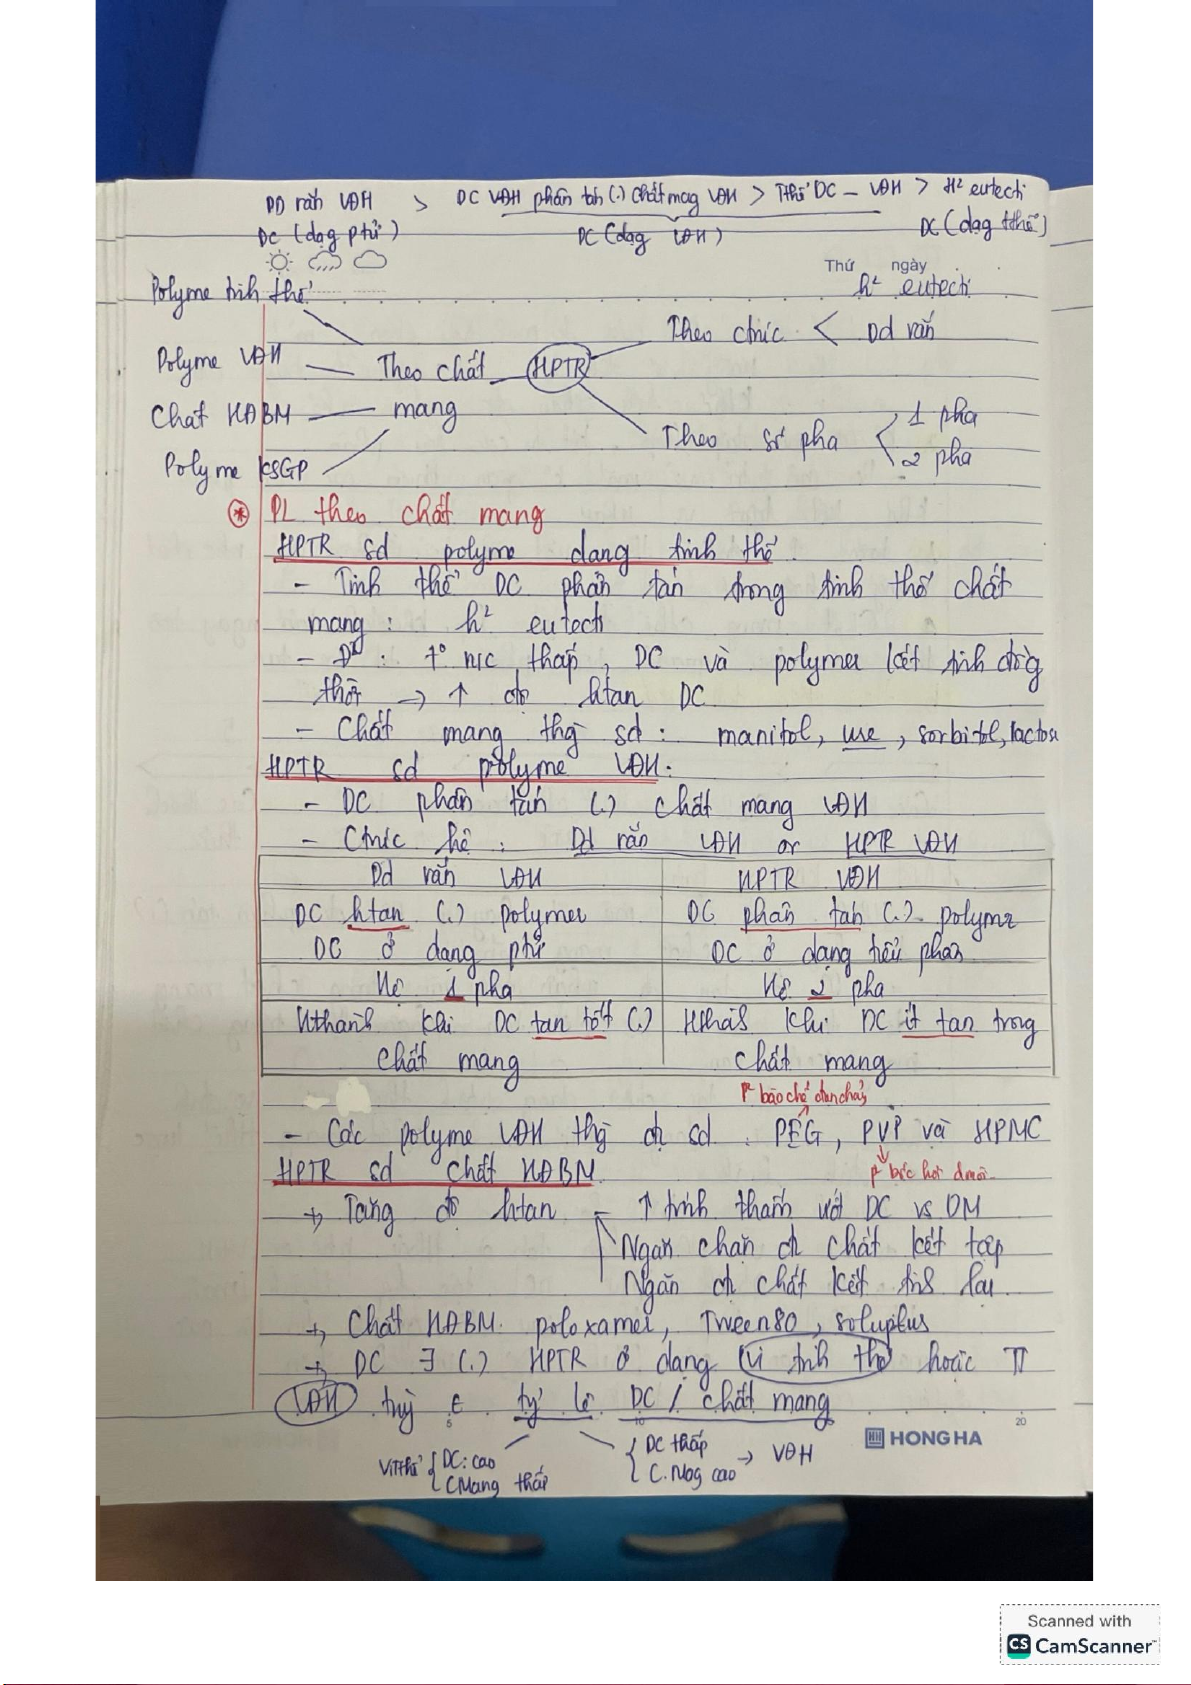 DD rắn VĐH > DC VĐH phân tán (.) chất mag VĐH > Tthể DC – VĐH > H² eutech
DC (dạg ptử) DC (dạg VĐH) DC (dạg tthể)
Thứ ngày
Polyme tinh thể h² eutech
Theo ctrúc < Dd rắn
Polyme VĐH Theo chất HPTR
Chất HĐBM mang 1 pha
Theo số pha < 2 pha
Polyme KSGP
* PL theo chất mang
HPTR sd polyme dang tinh thể
- Tinh thể DC phân tán trong tinh thể chất
mang : h² eutech
- Đ² : t° n/c thấp, DC và polymer kết tinh đồg
thời → ↑ độ htan DC
- Chất mang thg sd : manitol, ure, sorbitol, lactose
HPTR sd polyme VĐH.
- DC phân tán (.) chất mang VĐH
- Ctrúc hệ : Dd rắn VĐH or HPTR VĐH
Dd rắn VĐH HPTR VĐH
DC htan (.) polymer DC phân tán (.) polyme
DC ở dang ptử DC ở dạng tiểu phân
Hệ 1 pha Hệ 2 pha
Hthành khi DC tan tốt (.) Hthàh khi DC ít tan trong
chất mang chất mang
p² bào chế đun chảy
- Các polyme VĐH thg đc sd : PEG, PVP và HPMC
HPTR sd chất HĐBM p² bốc hơi dmôi
+, Tăng độ htan - ↑ tính thấm ướt DC vs DM
Ngăn chặn đc chất kết tập
Ngăn đc chất kết tinh lại
+, Chất HĐBM. poloxamer, Tween80, soluplus
+, DC ∃ (.) HPTR ở dạng vi tinh thể hoặc TT
VĐH tuỳ € tỷ lệ DC / chất mang
5 10 20
HONG HA
ViTthể { DC: cao { DC thấp → VĐH
C Mang thấp C. Mag cao
Scanned with
CS CamScanner